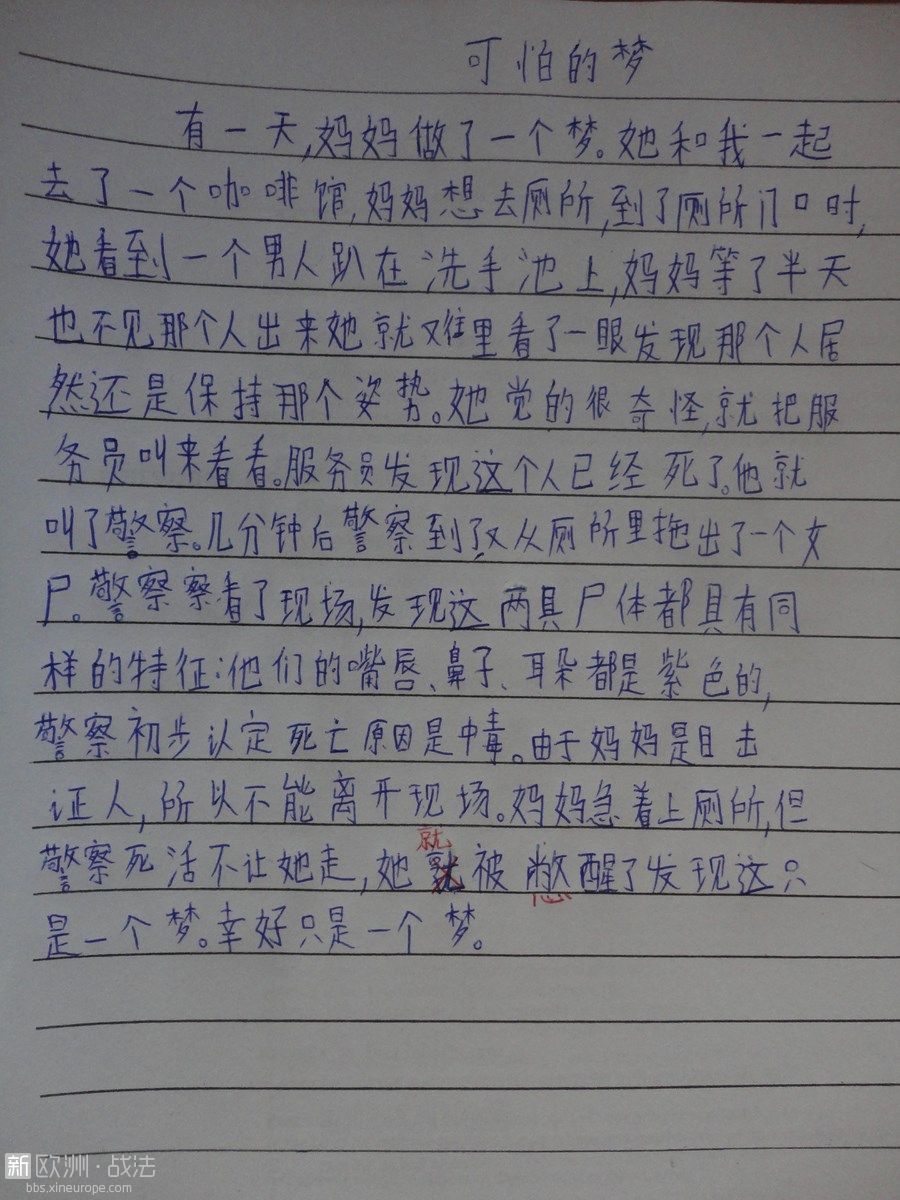 可怕的梦
有一天,妈妈做了一个梦。她和我一起
去了一个咖啡馆,妈妈想去厕所,到了厕所门口时,
她看到一个男人趴在洗手池上,妈妈等了半天
也不见那个人出来她就又往里看了一眼发现那个人居
然还是保持那个姿势。她觉的很奇怪,就把服
务员叫来看看。服务员发现这个人已经死了。他就
叫了警察。几分钟后警察到了又从厕所里拖出了一个女
尸。警察察看了现场,发现这两具尸体都具有同
样的特征:他们的嘴唇、鼻子、耳朵都是紫色的,
警察初步认定死亡原因是中毒。由于妈妈是目击
证人,所以不能离开现场。妈妈急着上厕所,但
就
警察死活不让她走,她就被憋醒了发现这只
是一个梦。幸好只是一个梦。
新欧洲·战法
bbs.xineurope.com